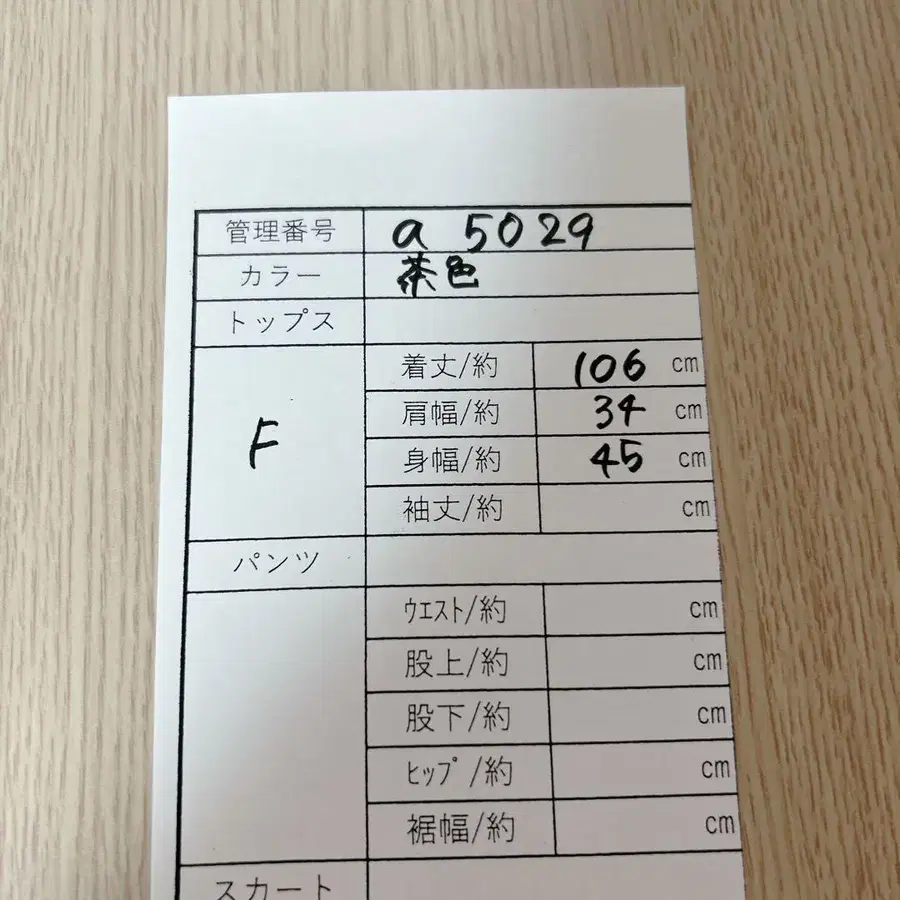 管理番号 a 5029
カラー 茶色
トップス
F
着丈/約 106 cm
肩幅/約 34 cm
身幅/約 45 cm
袖丈/約 cm
パンツ
ウエスト/約 cm
股上/約 cm
股下/約 cm
ヒップ/約 cm
裾幅/約 cm
スカート